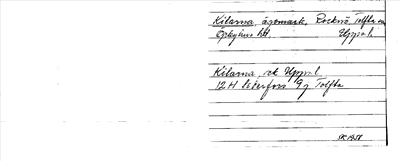 Kilarna, ägomark, Rocknö Tolfta sn
Örbyhus hd. Upps. l.
Kilarna, ek Upps. l
12 H Söderfors 9 g Tolfta
SK 1958